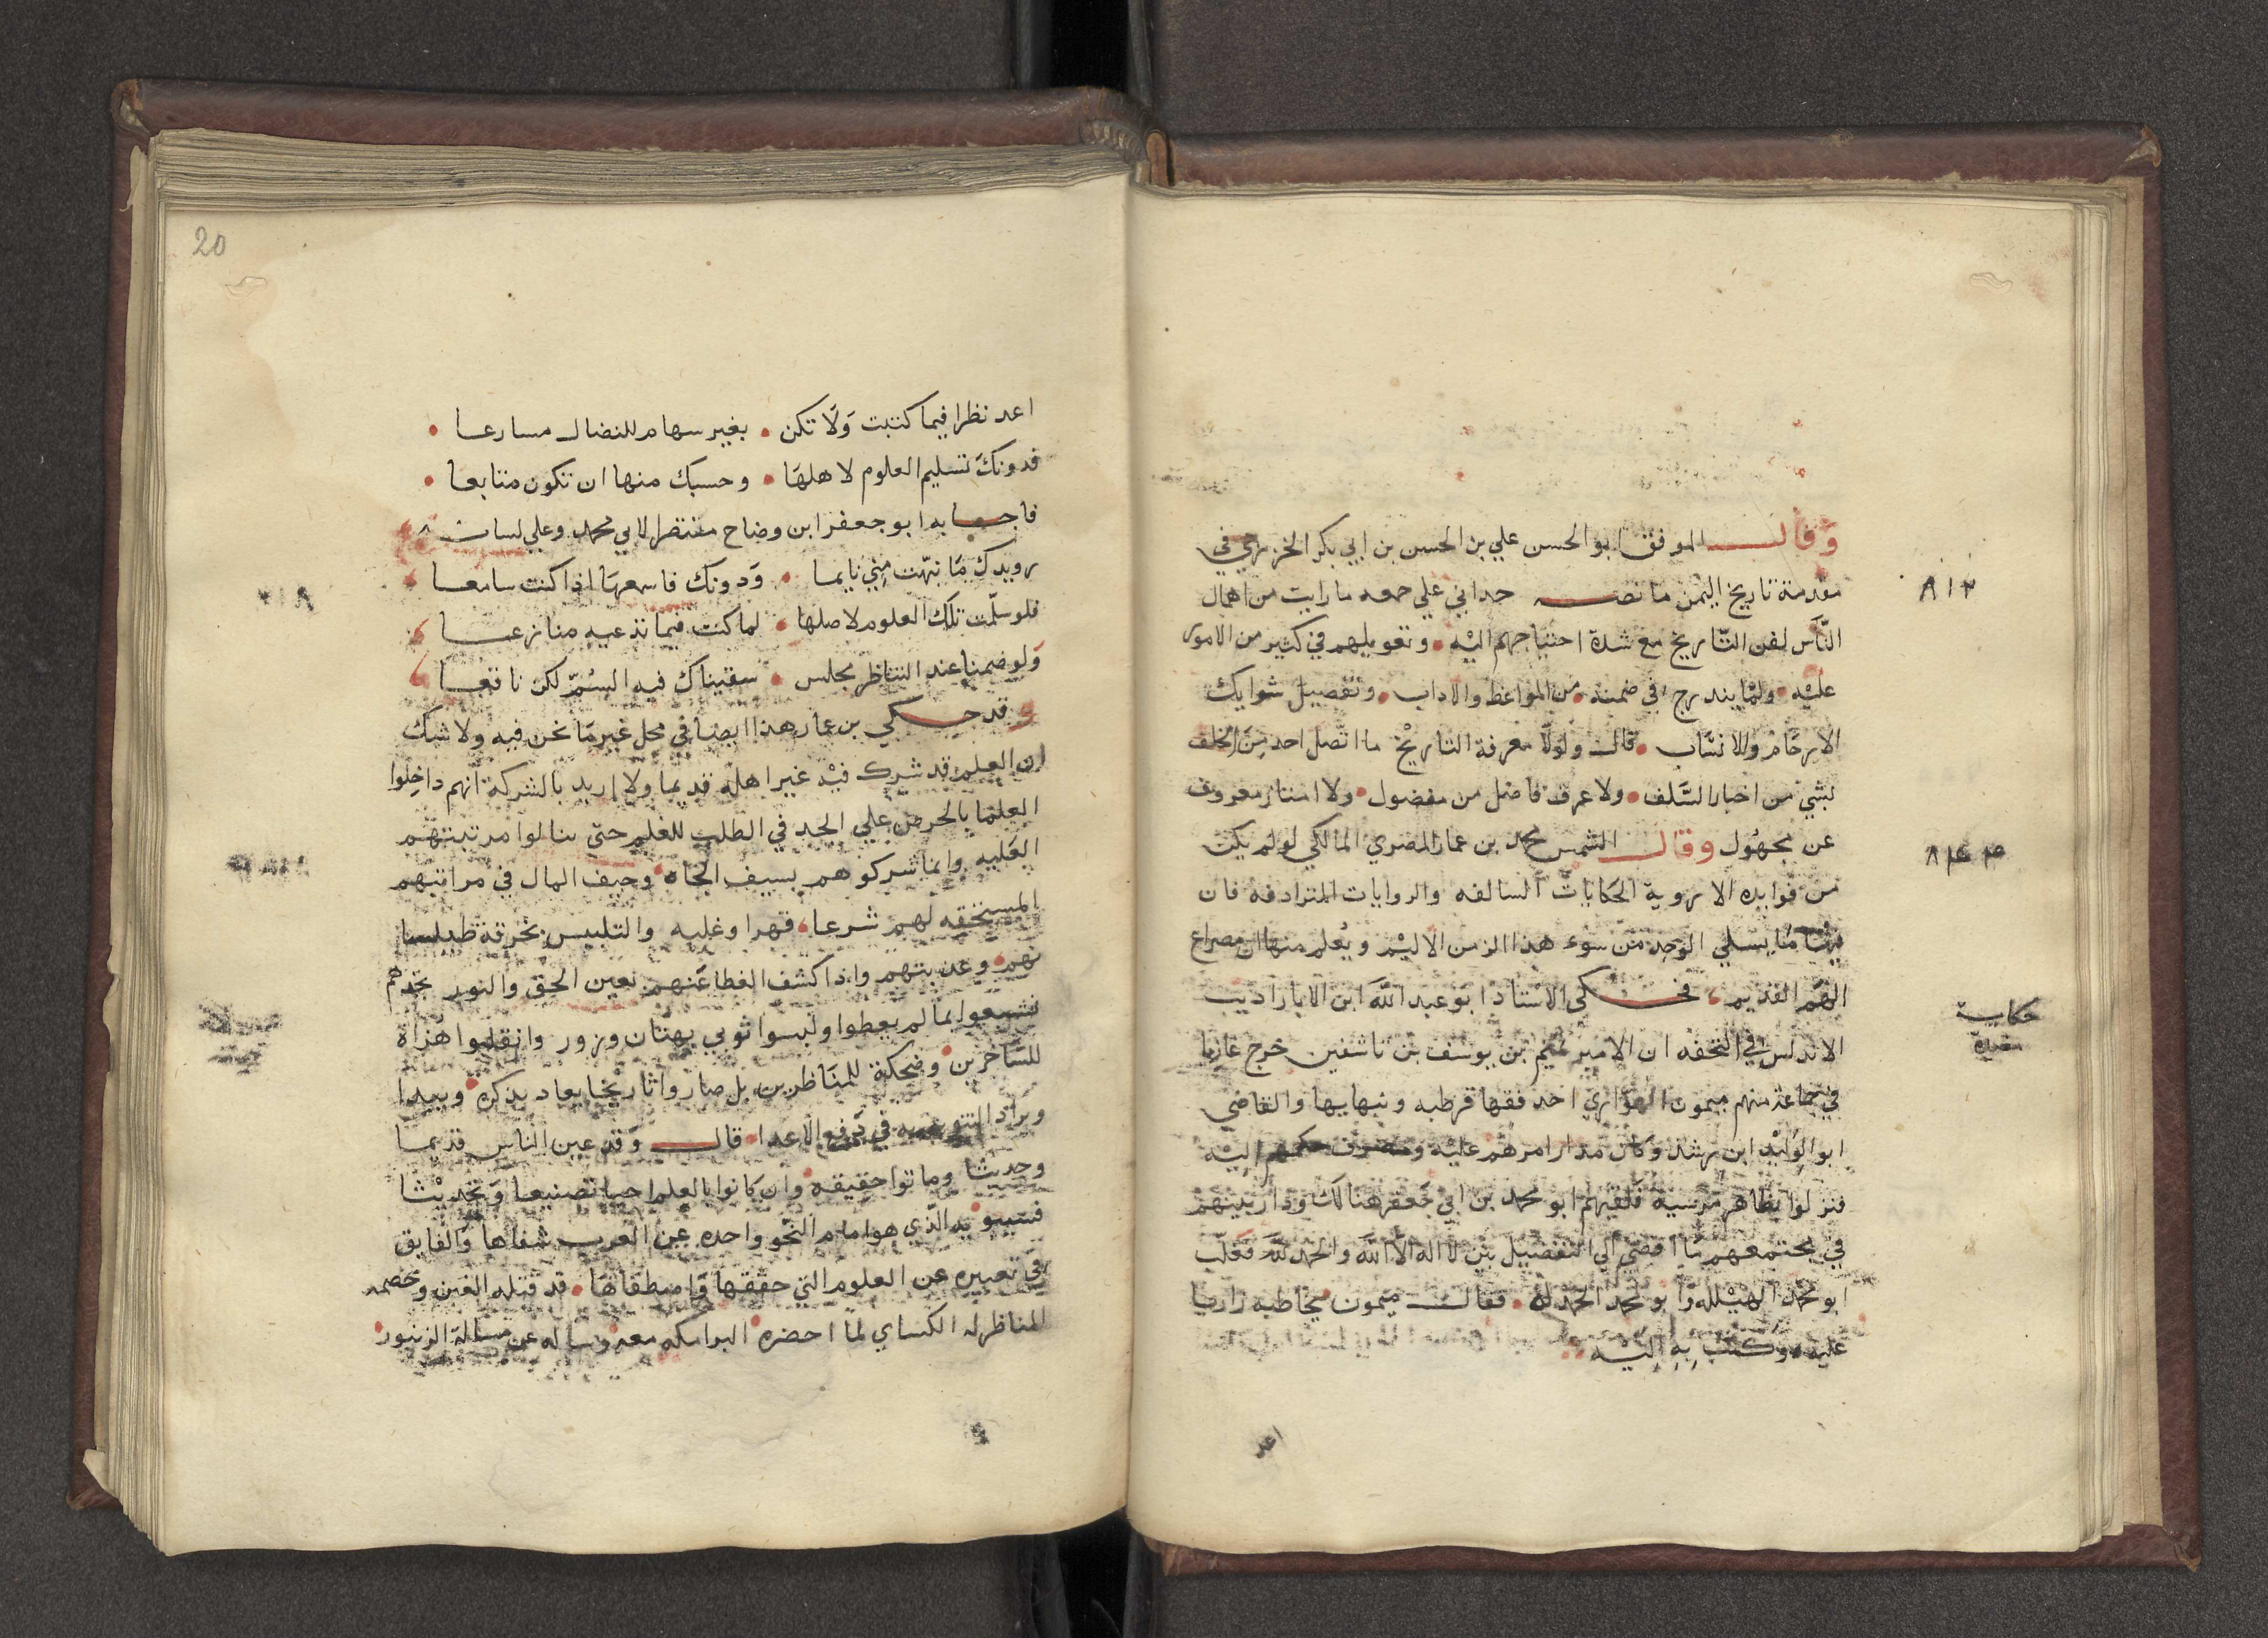 وقال الموفق ابو الحسن علي بن الحسن بن ابي بكر الخزرجي في
مقدمة تاريخ اليمن ما نصه حداني علي جمعه ما رايت من اهمال
٨١٢
النّاس لفن التّاريخ مع شدة احتياجهم اليْه • وتعويلهم في كثير من الامور
عليْه • ولما يندرج في ضمنه • من المواعظ والاداب • وتفصيل شوابك
الارحام والانساب • قال ولولا معرفة التاريْخ ما اتّصل احد من الخلف
بشي من اخبار السَّلف • ولا عرف فاضل من مفضول • ولا امتاز معروف
عن مجهُول وقال الشمس محمد بن عمار المصري المالكي لو لم يكن
٨٤٤
من فوايده الا روية الحكايات السالفه والروايات المترادفه فان
فيها ما يسلي الوجد من سوء هذا الزمن الاليْم ويُعلم منها ان صراع
الهَم القديم، فحكى الاستاذ ابو عبد الله ابن الابار اديب
حكاية
مفيدة
الاندلس في التحفه ان الامير تميم بن يوسف بن تاشفين خرج غازيا
في جماعة منهم ميمون الهوّاري احد فقها قرطبه ونبهايها والقاضي
ابو الوليْد ابن رشد وكان مدار امرهم عليْه ومصرف حكمهم اليْه
فنزلوا بظاهر مرْسية فلقيهم ابو محمد بن ابي جَعفر هنالك ودار بينهم
في مجتمعهم ما افضي الي التفضيل بين لا اله الا الله والحمد لله فغلّب
ابو محمد الهيْلله وابو محمد الحمد له • فقال ميمون يخاطبه زاريا
عليه • وكتب بهِ اليْه
اعد
20
اعد نظرا فيما كتبت وَلَا تكن • بغير سهام للنضال مسارعا •
فدونك تسليم العلوم لاهلهَا • وحسبك منها ان تكون متابعا •
فاجابه ابو جعفر ابن وضاح منتصرا لابي محمد وعلي لسانه
رويدك مَا نبّهت مِنِي نايما • وَدونك فاسمعهَا اذا كنت سامعا
فلو سلّمت تلك العلوم لاصلها • لما كنت فيما تدعيه منازعا
وَلو ضمنا عند التناظر مجلس • سقيناك فيه السُمّ لكن ناقعا
وقد حكي بن عمار هذا ايضا في محل غير مَا نحن فيه ولا شك
ان العلم قد شرك فيْه غير اهله قديما ولا اريد بالشركة انهم داخِلوا
العلما بالحرص علي الجد في الطلب للعلم حتّى ينالوا مرتبتهُم
العَليه وانما شركوهم بسيف الجاه • وحيف المال في مراتبهم
المستحقه لهم شرعا، قهرا وغلبه والتلبيس بخرقة طيلسا
نهم • وعذبتهم واذا كشف الغطا عَنهم بعين الحق والنور تجدهم
تشبعوا بما لم يعطوا ولبسوا ثوبي بهتان وزور وانقلبوا هُزاة
للسّاخرين • وضحكة للمناظرين بل صاروا تاريْخا يعاد بذكره • ويبدا
ويراد التنويه به في دَفع الاعدا • قال وَقد عيبن الناس قديما
وحديثا وماتوا حقيقه وان كانوا بالعلم احيا تصنيعا وَتحديْثا
فسيبويه الّذي هو امام النحو واحده عن العرب شفاها والفايق
في تعبيره عن العلوم التي حققها وَامتطقاهَا • قد قتله الغبن وخصمه
المناظر له الكساي لما احضره البرامكه معه • وساله عن مسالة الزنبور •